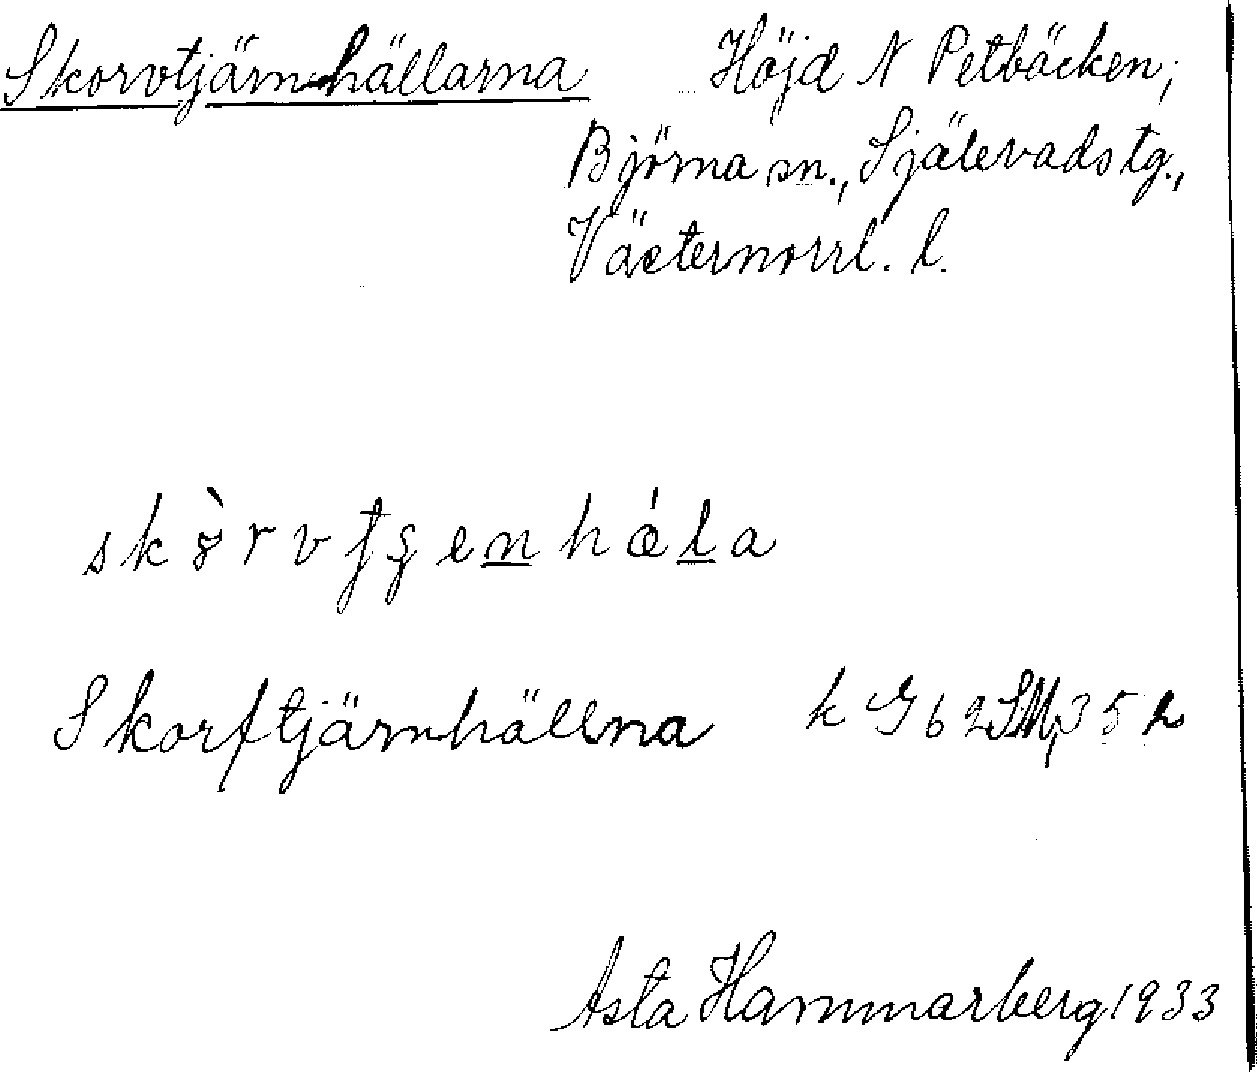 Skorvtjärnhällarna Höjd N Petbäcken;
Björna sn., Själevads tg.,
Västernorrl. l.
Skorftjärnhällna k G 62
Asta Hammarberg 1933